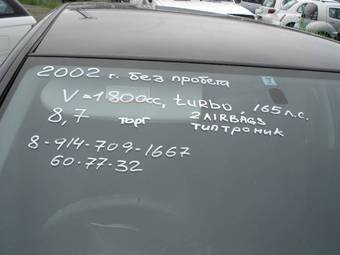 2002 г. без пробега
V=1800cc, turbo, 165 л.с.
8,7 торг 2AIRBAGS
типтроник
8-914-709-1667
60-77-32